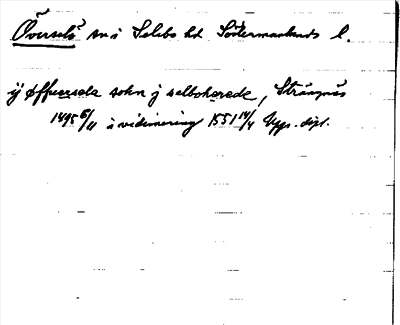 Överselö sn i Selebo hd Södermanlands l.
ÿ øffuersela sokn j selboherede, Strängnäs
1495 5/11 i vidimering 1551 14/4 Upps. dipl.